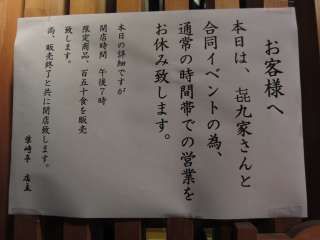 お客様へ
本日は、㐂九家さんと
合同イベントの為、
通常の時間帯での営業を
お休み致します。
本日の詳細ですが
開店時間 午後7時
限定商品、百五十食を販売
致します。
尚、販売終了と共に閉店致します。
柴崎亭 店主